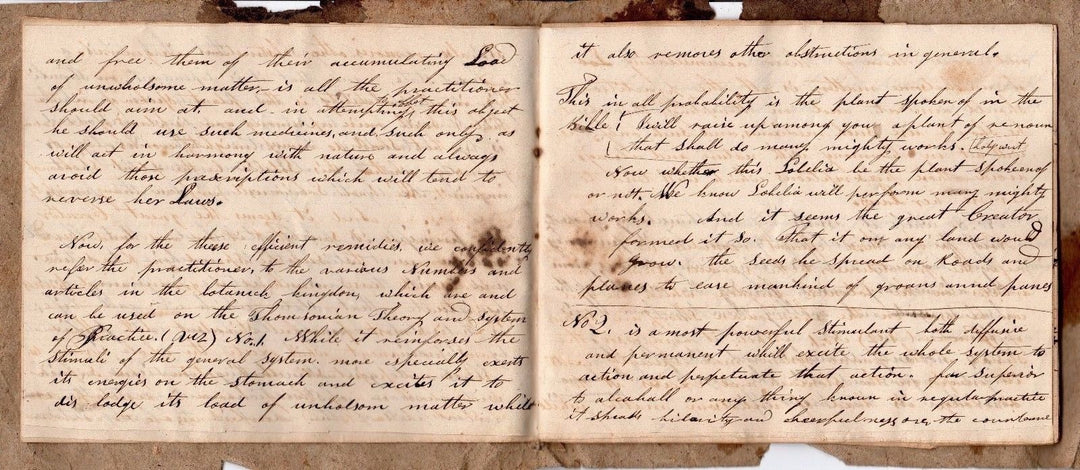 and free them of their accumulating Load
of unwholsome matter,- is all the practitioner
should aim at. and in attempting to effect this object
he should use such medicines, and such only as
will act in harmony with nature and always
avoid those prescriptions which will tend to
reverse her Laws.
Now, for the these efficient remidies, we confidently
refer the practitioner, to the various Numbers and
articles in the botanick kingdom, which are and
can be used on the Thomsonian Theory and System
of Practice. (viz) No. 1. While it reinforses the
Stimuli of the general system. more especially exerts
its energies on the Stomach and excites it to
dis lodge its load of unholsom matter while
it also removes other obstructions in general.
This in all probability is the plant spoken of in the
Bible I will raise up among you a plant of renoun
that shall do many mighty works. holy writ
Now whether this Lobelia be the plant spoken of
or not. We know Lobelia will perform many mighty
works. And it seems the great Creator
formed it so. That it on any land would
grow. the Seeds he Spread on Roads and
planes to ease mankind of groans annd panes
No 2. is a most powerful Stimulant both diffusive
and permanent whill excite the whole system to
action and perpetuate that action. far superior
to alcahall or any thing known in regular practice
it Sheads hilarity and cheerfulness over the countane